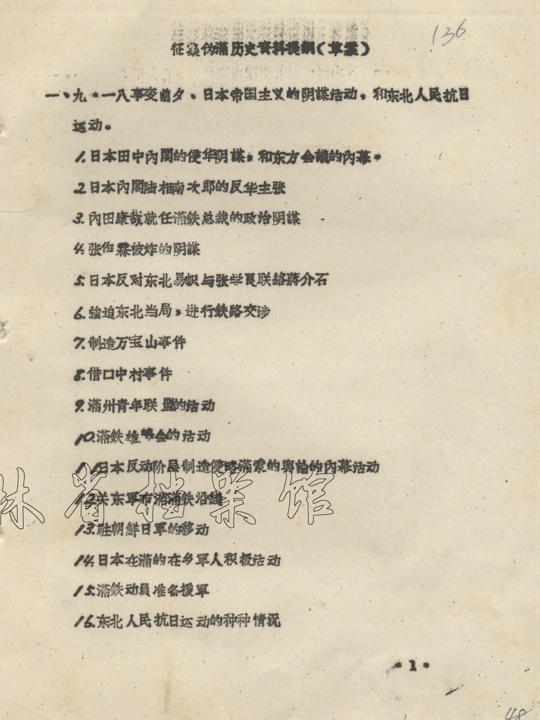 136
征集伪满历史资料提綱(草案)
一、九·一八事变前夕、日本帝国主义的阴謀活动，和东北人民抗日
运动。
1.日本田中内閣的侵华阴謀，和东方会議的内幕。
2.日本内閣陆相南次郎的反华主张
3.内田康哉就任滿鉄总裁的政治阴謀
4.张作霖被炸的阴謀
5.日本反对东北易帜与张学良联絡蔣介石
6.強迫东北当局，进行鉄路交涉
7.制造万宝山事件
8.借口中村事件
9.滿州青年联盟的活动
10.滿鉄雄峰会的活动
11.日本反动阶层制造侵略滿蒙的輿論的内幕活动
12.关东軍布滿滿鉄沿綫
13.駐朝鮮日軍的移动
14.日本在滿的在乡軍人积极活动
15.滿鉄动員准备援軍
16.东北人民抗日运动的种种情况
林省档案馆
·1·
48